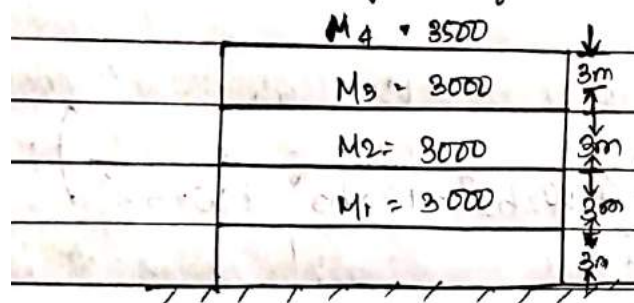 M4 = 3500
M3 = 3000
3m
M2 = 3000
3m
M1 = 3000
3m
3m